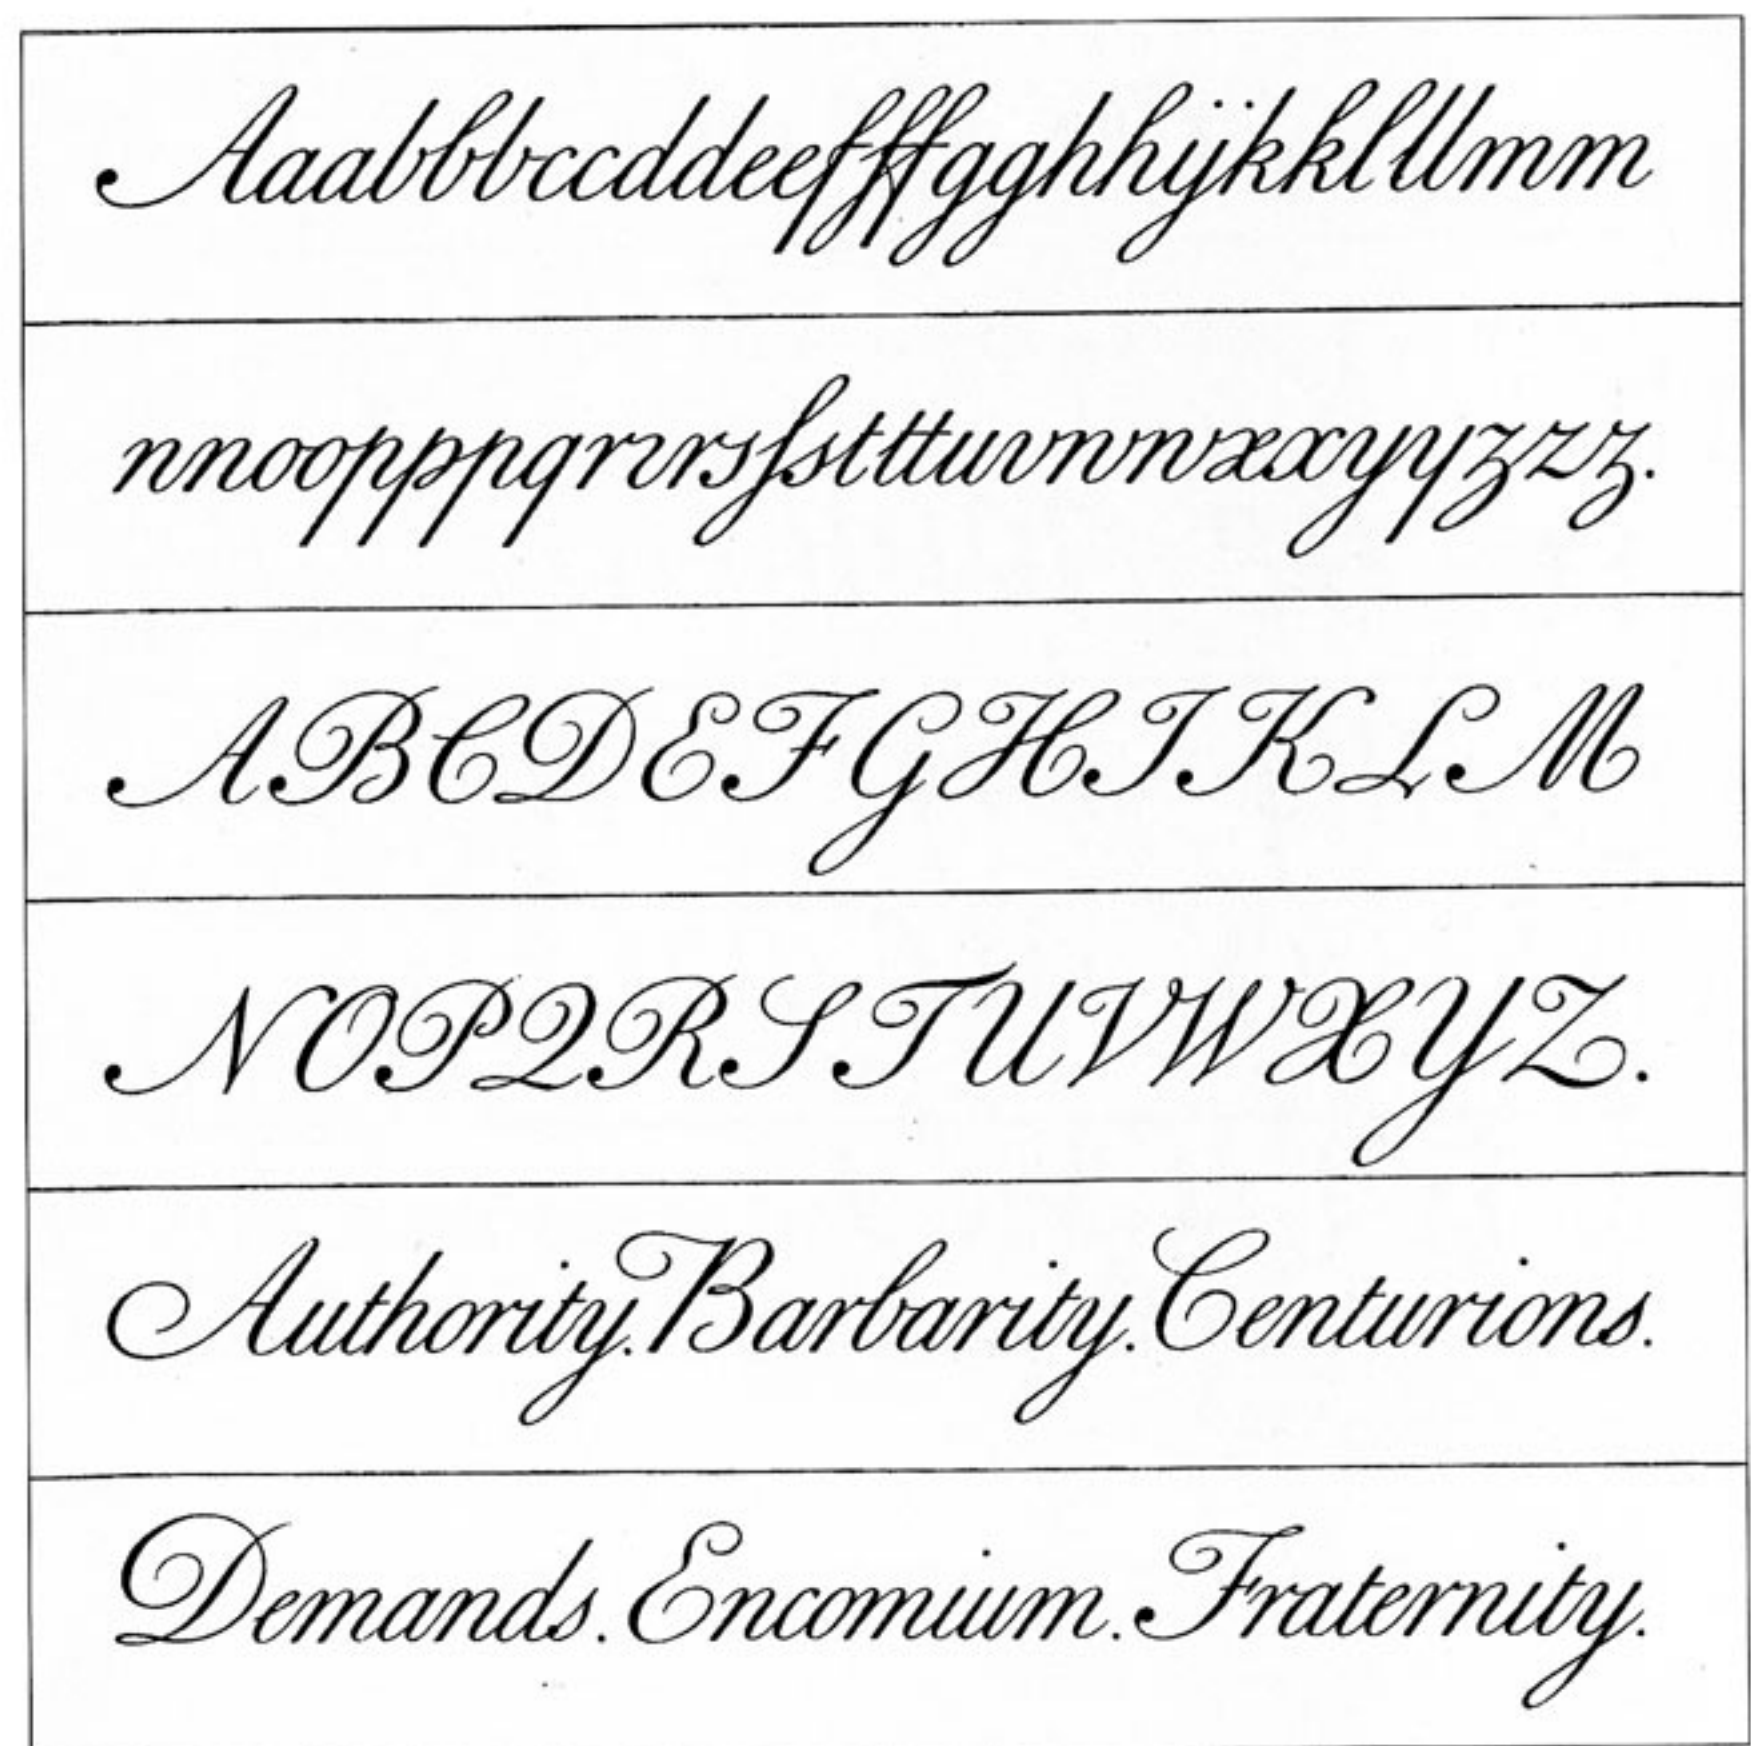 Aaabbbccddeeffffgghhijkklllmm
nnoopppqrrrsſstttuvwwxxyyzzz.
ABCDEFGHIKLM
NOPQRSTUVWXYZ.
Authority. Barbarity. Centurions.
Demands. Encomium. Fraternity.